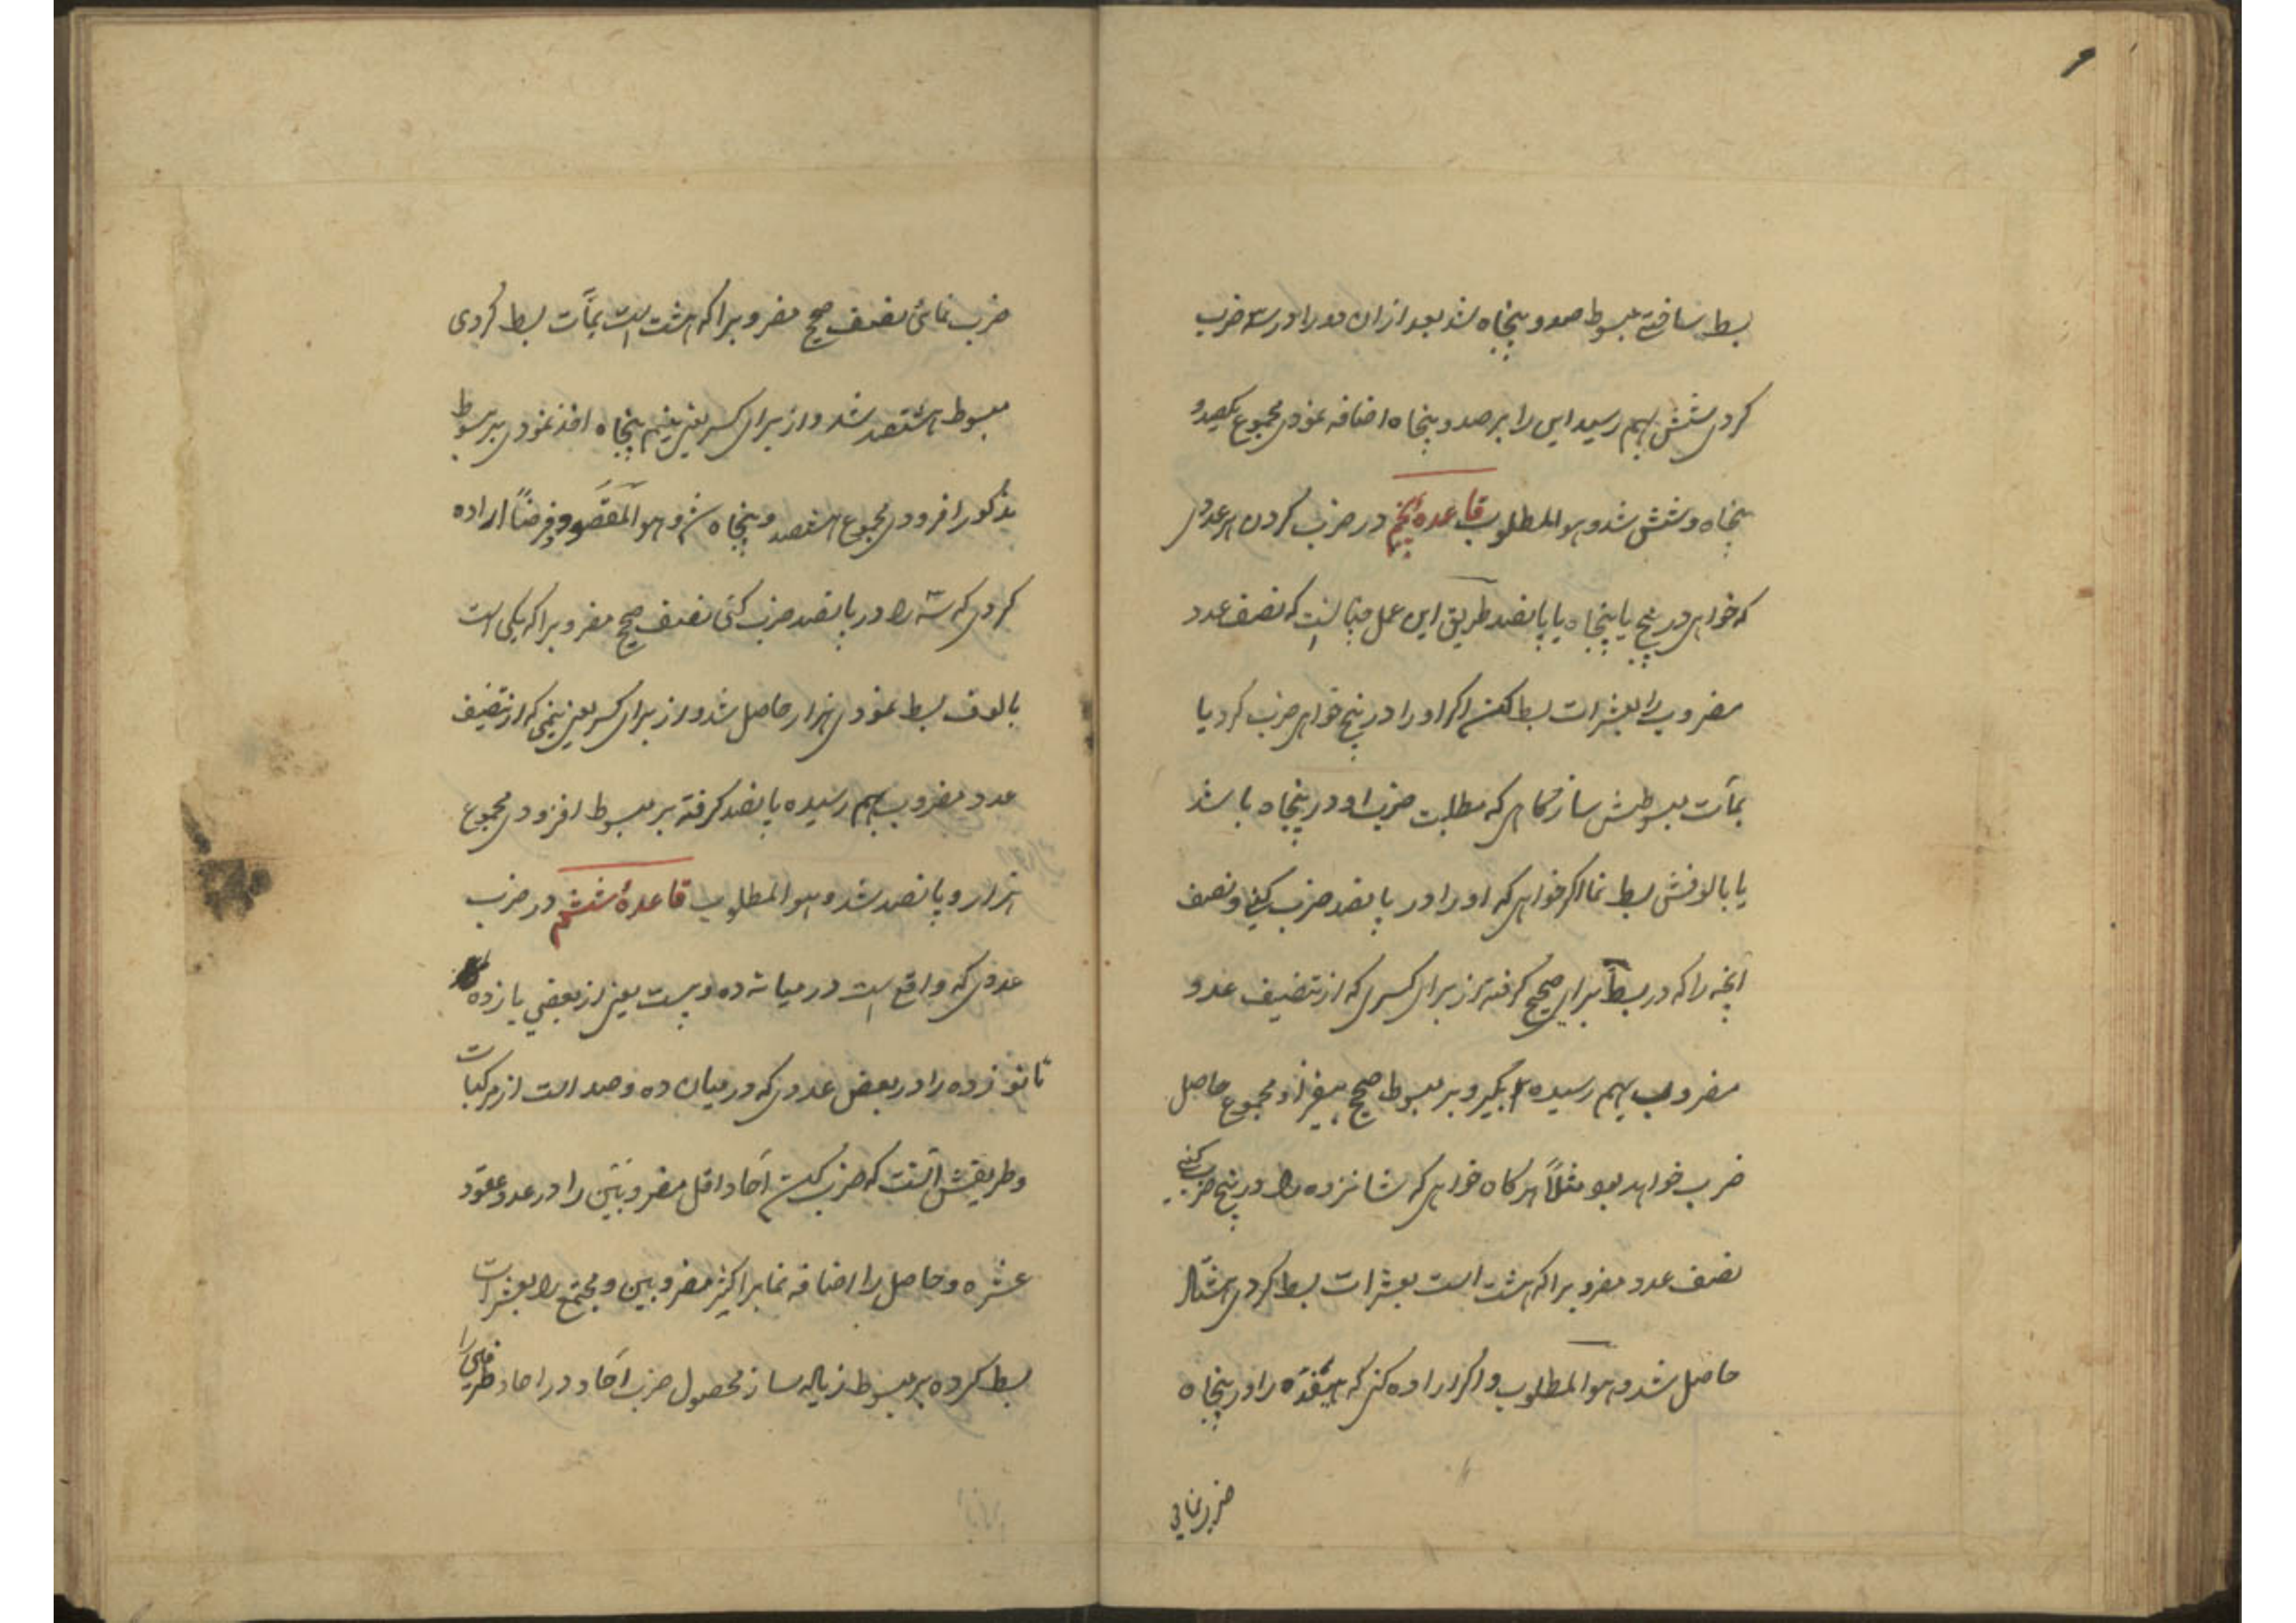 بسط ساختی مبسوط صدو پنجاه شد بعد از ان دو را در سه ضرب
کردی شش بهم رسید این را بر صد و پنجاه اضافه نمودی مجموع یکصدو
پنجاه و شش شد و هو المطلوب قاعدهٔ پنجم در ضرب کردن هر عددی
که خواهی در پنج یا پنجاه یا پانصد طریق این عمل چنانست که نصف عدد
مضروب را بعشرات بسط کنی اگر او را در پنج خواهی ضرب کرد یا
بمآت مبسوطش ساز هرگاهی که مطلبت ضرب او در پنجاه باشد
یا بالوفش بسط نما اگر خواهی که او را در پانصد ضرب کنی و نصف
آنچه را که در بسط برای صحیح گرفته از برای کسری که از تنصیف عدد
مضروب بهم رسیده بگیر و بر مبسوط صحیح بیفزا و مجموع حاصل
ضرب خواهد بود مثلاً هرگاه خواهی که شانزده را در پنج ضرب کنی
نصف عدد مضروبرا که هشت است بعشرات بسط کردی هشتاد
حاصل شد و هو المطلوب و اگر اراده کنی که هیفده را در پنجاه
ضرب نمائی
ضرب نمائی نصف صحیح مضروبرا که هشت است بمآت بسط کردی
مبسوط هشتصد شد و از برای کسر یعنی نیم پنجاه اخذ نمودی بر مبسوط
مذکور افزودی مجموع هشتصد و پنجاه شد و هو المقصود و فرضاً اراده
کردی که سه را در پانصد ضرب کنی نصف صحیح مضروبرا که یکی است
بالوف بسط نمودی هزار حاصل شد و از برای کسر یعنی نیمی که از تنصیف
عدد مضروب بهم رسیده پانصد گرفته بر مبسوط افزودی مجموع
هزار و پانصد شد و هو المطلوب قاعدهٔ ششم در ضرب
عددی که واقع است در میانه ده و بیست یعنی از بعضی یازده
تا نوزده را در بعض عددی که در میان ده و صد است از مرکبات
و طریقش آنست که ضرب کنی آحاد اقل مضروبین را در عدد عقود
عشره و حاصل را اضافه نما بر اکثر مضروبین و مجتمع را بعشرات
بسط کرده بر مبسوط زیاده ساز محصول ضرب آحاد در احاد طرفین را